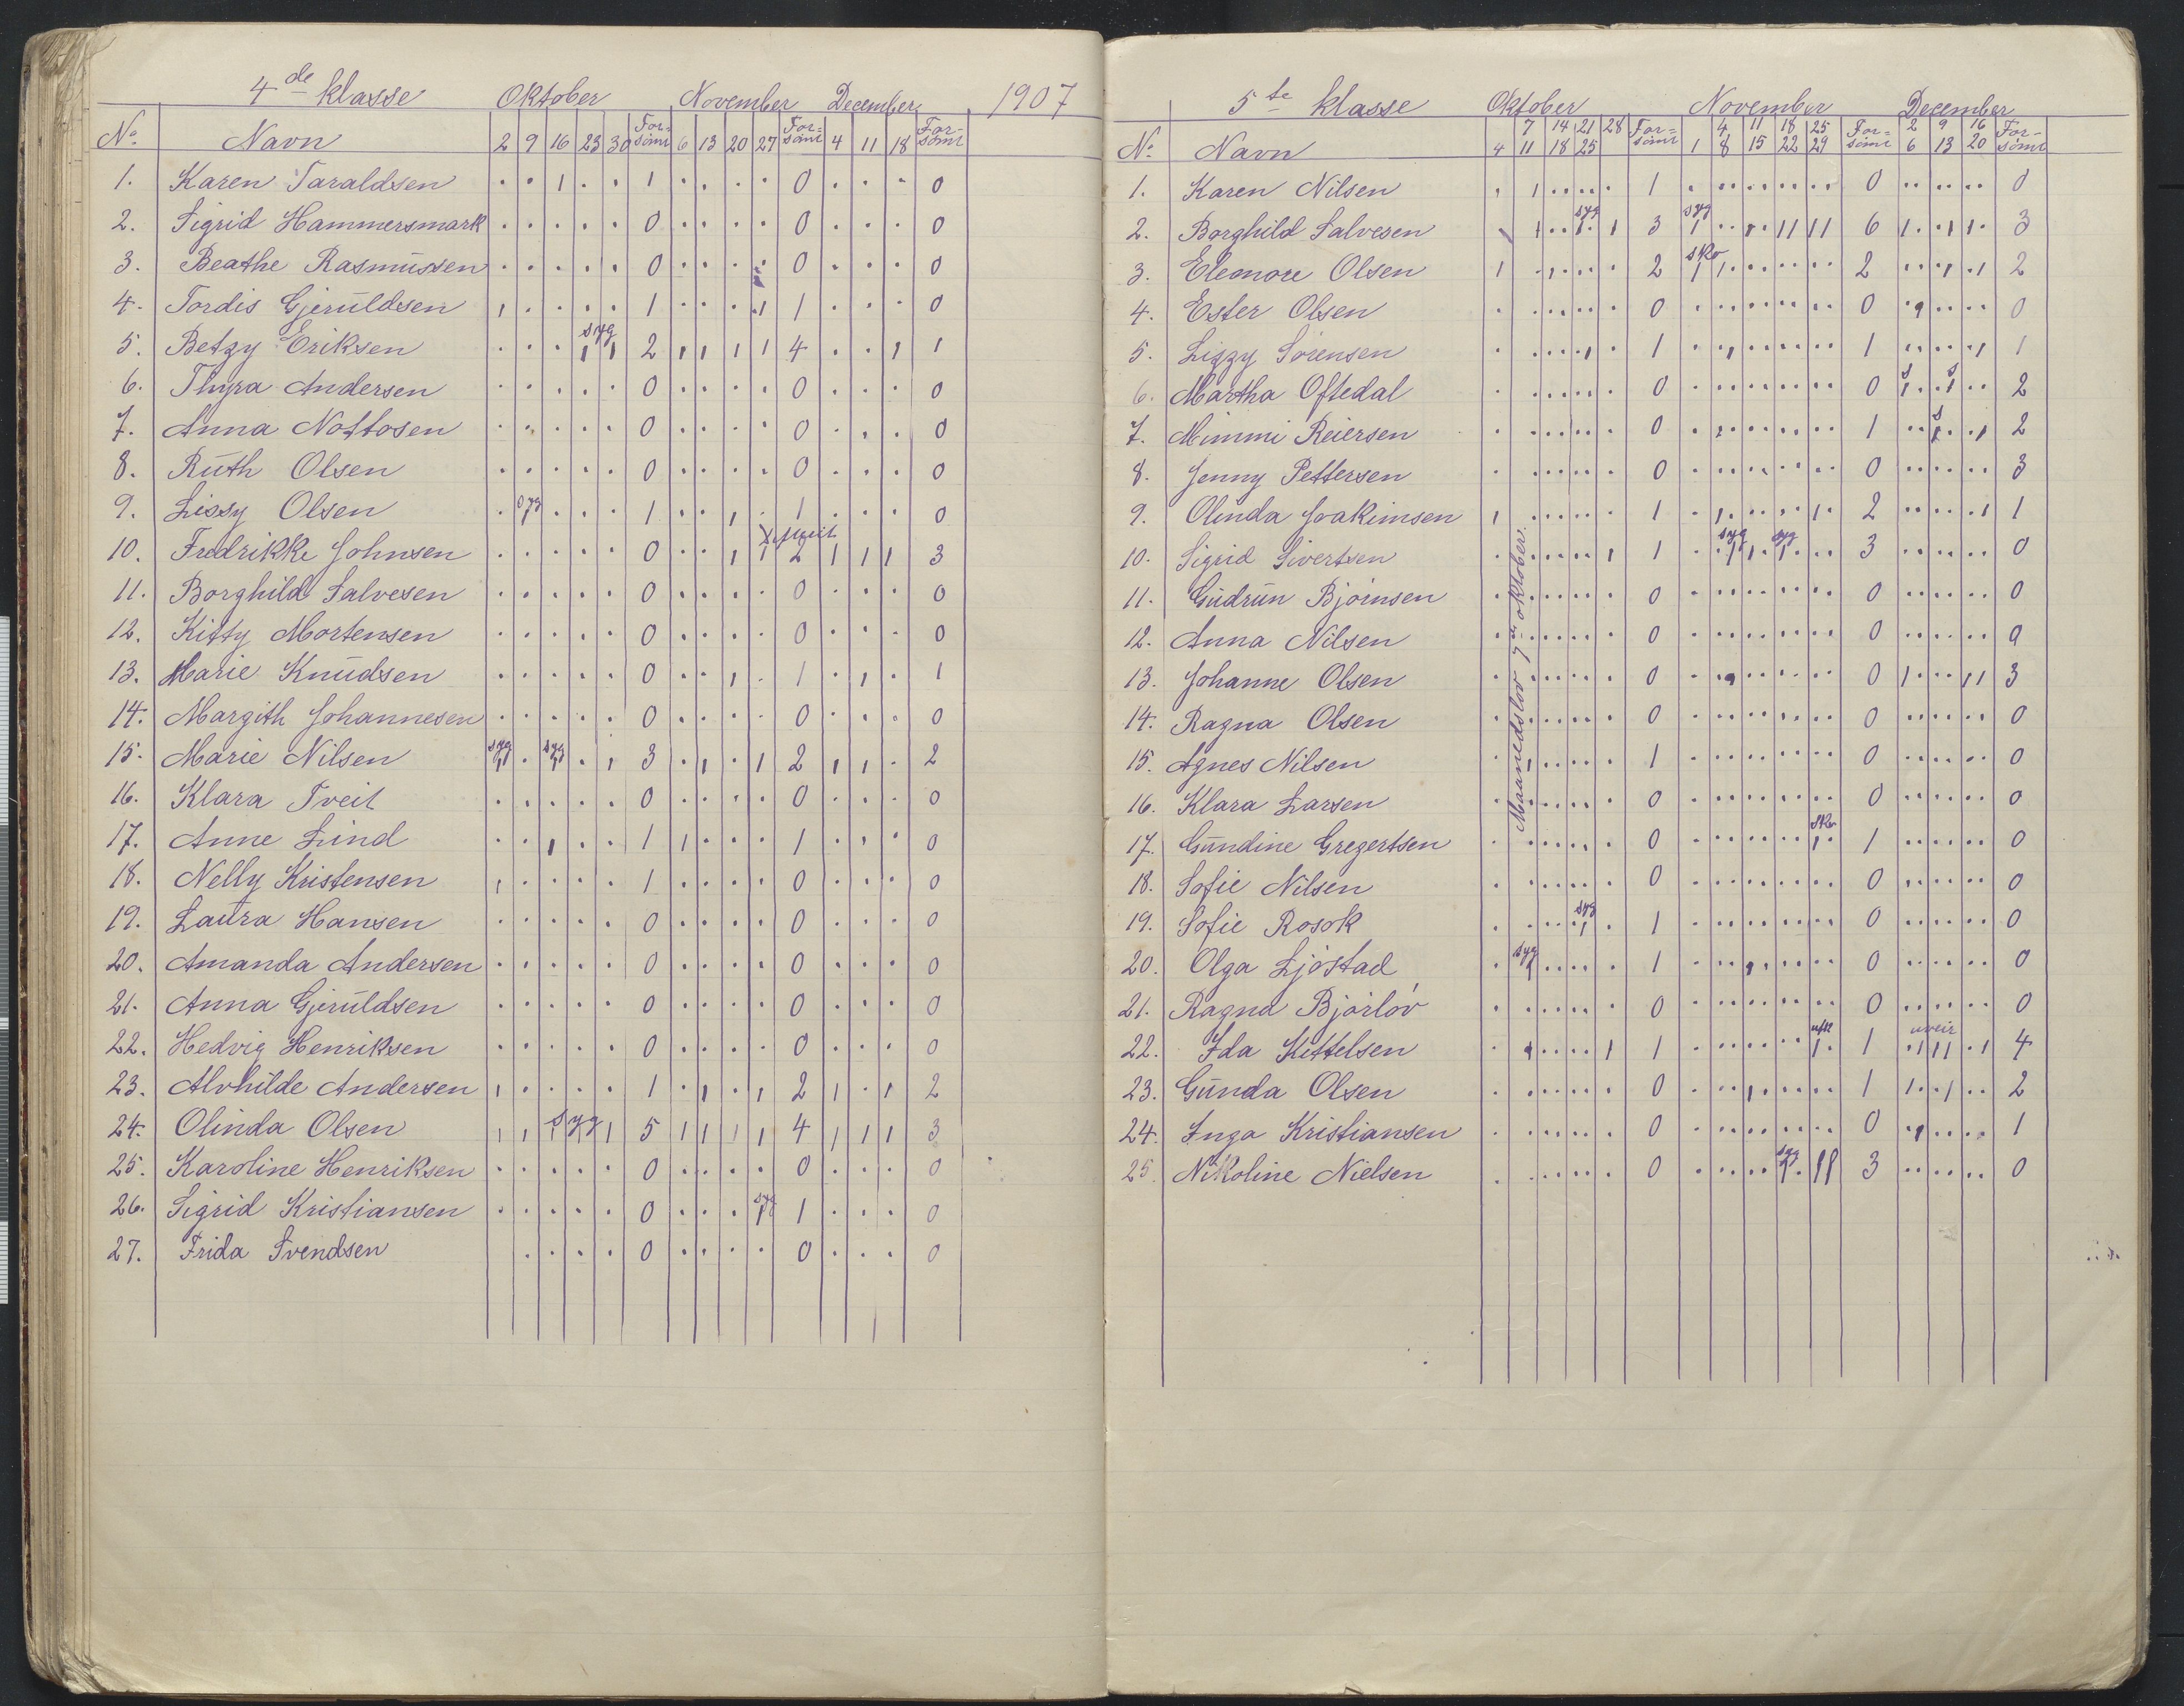 4de klasse Oktober November December 1907
No Navn 2 9 16 23 30 For=sömt 6 13 20 27 For=sömt 4 11 18 For-sömt
1. Karen Taraldsen . . 1 . . 1 . . . . 0 . . . 0
2. Sigrid Hammersmark . . . . . 0 . . . . 0 . . . 0
3. Beathe Rasmussen . . . . . 0 . . . . 0 . . . 0
4. Tordis Gjeruldsen 1 . . . . 1 . . . 1 1 . . . 0
5. Betzy Eriksen . . . syg 1 1 2 1 1 1 1 4 . . 1 1
6. Thyra Andersen . . . . . 0 . . . . 0 . . . 0
7. Anna Nottosen . . . . . 0 . . . . 0 . . . 0
8. Ruth Olsen . . . . . 0 . . . . 0 . . . 0
9. Lissy Olsen . syg 1 . . . 1 . . 1 . 1 . . . 0
10. Fredrikke Johnsen . . . . . 0 . . 1 1 2 1 1 1 3
11. Borghild Salvesen . . . . . 0 . . . . 0 . . . 0
12. Kitty Mortensen . . . . . 0 . . . . 0 . . . 0
13. Marie Knudsen . . . . . 0 . . 1 . 1 . 1 . 1
14. Margith Johannesen . . . . . 0 . . . . 0 . . . 0
15. Marie Nilsen syg 1 . syg 1 . 1 3 . 1 . 1 2 1 1 . 2
16. Klara Tveit . . . . . 0 . . . . 0 . . . 0
17. Anne Lind . . 1 . . 1 1 . . . 1 . . . 0
18. Nelly Kristensen 1 . . . . 1 . . . . 0 . . . 0
19. Laura Hansen . . . . . 0 . . . . 0 . . . 0
20. Amanda Andersen . . . . . 0 . . . . 0 . . . 0
21. Anna Gjeruldsen . . . . . 0 . . . . 0 . . . 0
22. Hedvig Henriksen . . . . . 0 . . . . 0 . . . 0
23. Alvhilde Andersen 1 . . . . 1 . 1 . 1 2 1 . 1 2
24. Olinda Olsen 1 1 syg 1 1 1 5 1 1 1 1 4 1 1 1 3
25. Karoline Henriksen . . . . . 0 . . . . 0 . . . 0
26. Sigrid Kristiansen . . . . . 0 . . . syg 1 1 . . . 0
27. Frida Svendsen . . . . 0 . . . . 0 . . . 0
5te klasse Oktober November December
7 14 21 28 For= 4 11 18 25 For= 2 9 16 For-
No Navn 4 11 18 25 sömt 1 8 15 22 29 sömt 6 13 20 sömt
1. Karen Nilsen . 1 . . . . . 1 . . . . . . . . . 0 . . . . . . 0
2. Borghild Salvesen 1 . . syg 1 . 1 3 syg 1 . . 1 . 1 1 1 1 6 1 . . 1 1 . 3
3. Eleonore Olsen 1 . 1 . . . . 2 sko 1 1 . . . . . . . 2 . . . 1 . 1 2
4. Ester Olsen . . . . . . . 0 . . . . . . . . . 0 . . . . . . 0
5. Lizzy Sörensen . . . . . 1 . 1 . 1 . . . . . . . 1 . . . . . 1 1
6. Martha Oftedal . . . . . . . 0 . . . . . . . . . 0 s 1 . . s 1 . . 2
7. Mimmi Reiersen . . . . . . . 0 . 1 . . . . . . . 1 . . s 1 . . 1 2
8. Jenny Pettersen . . . . . . . 0 . . . . . . . . . 0 . . . . . . 3
9. Olinda Joakimsen 1 . . . . . . 1 . 1 . . . . . 1 . 2 . . . . . 1 1
10. Sigrid Sivertsen . . . . . . 1 1 . . syg 1 1 . syg 1 . . . 3 . . . . . . 0
11. Gudrun Björnsen . . . . . . . 0 . . . . . . . . . 0 . . . . . . 0
12. Anna Nilsen . . . . . . . 0 . . . . . . . . . 0 . . . . . . 0
13. Johanne Olsen . . . . . . . 0 . . . . . . . . . 0 1 . . . 1 1 3
14. Ragna Olsen . . . . . . . 0 . . . . . . . . . 0 . . . . . . 0
15. Agnes Nilsen . 1 . . . . . 1 . . . . . . . . . 0 . . . . . . 0
16. Klara Larsen . . . . . . . 0 . . . . . . . . . 0 . . . . . . 0
17. Gundine Gregertsen . . . . . . . 0 . . . . . . . sko 1 . 1 . . . . . . 0
18. Sofie Nilsen . . . . . . . 0 . . . . . . . . . 0 . . . . . . 0
19. Sofie Rosok . . . . . syg 1 . 1 . . . . . . . . . 0 . . . . . . 0
20. Olga Ljöstad . syg 1 . . . . . 1 . . . . . . . . . 0 . . . . . . 0
21. Ragna Bjørløv . . . . . . . 0 . . . . . . . . . 0 . . . . . . 0
22. Ida Kittelsen . . . . . . 1 1 . . . . . . . 1 . 1 uveir . 1 1 1 . 1 4
23. Gunda Olsen . . . . . . . 0 . . . 1 . . . . . 1 1 . . 1 . . 2
24. Inga Kristiansen . . . . . . . 0 . . . . . . . . . 0 . 1 . . . . 1
25. Nikoline Nielsen . . . . . . . 0 . . . . . syg 1 . 1 1 3 . . . . . . 0
Maanedslov 7de oktober.